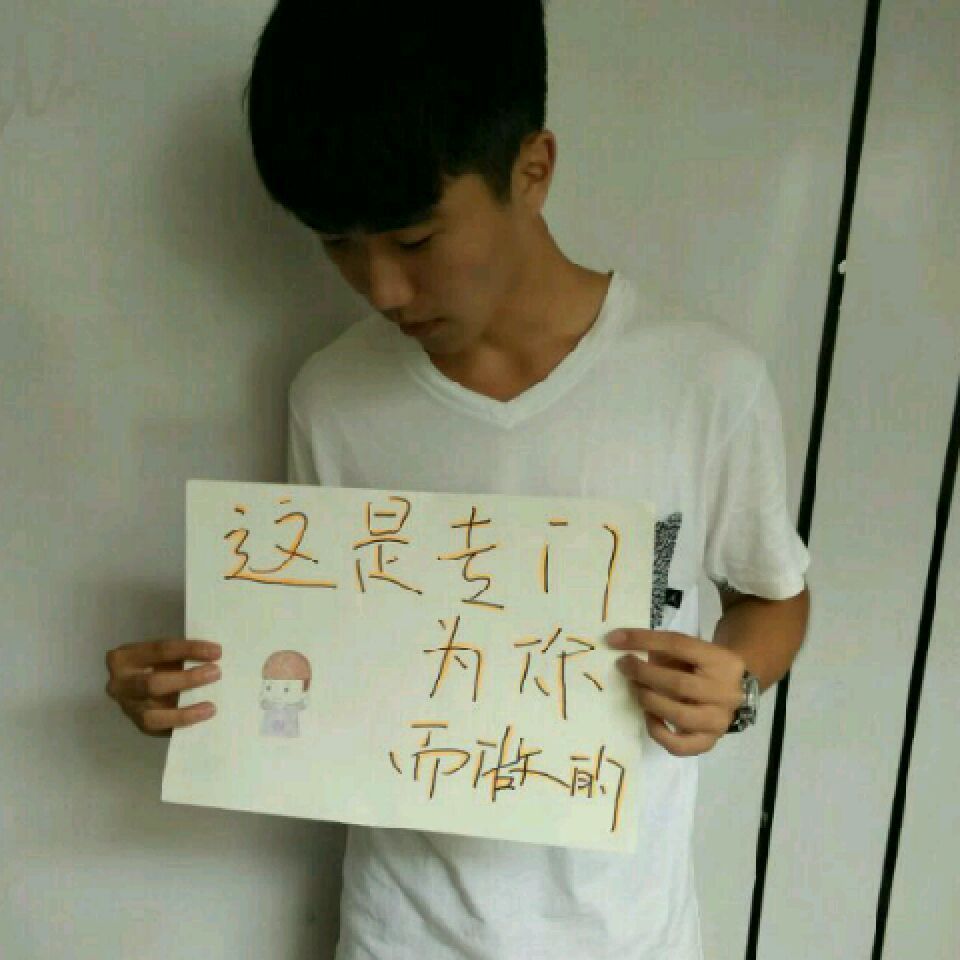 这是专门
为你
而做的